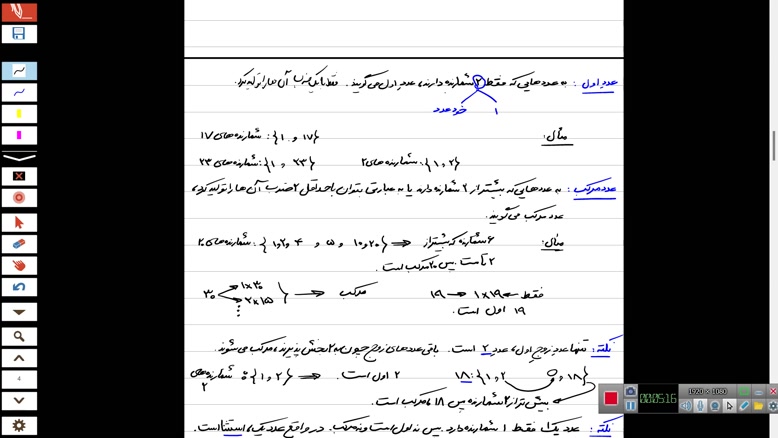 عدد اول : به عددهایی که فقط ۲ شمارنده دارند، عدد اول می‌گویند. فقط با یک ضرب آن ها را تولید کرد.
خود عدد ۱
مثال:
شمارنده های ۱۷ : {۱ , ۱۷}
شمارنده های ۲۳ : {۱ , ۲۳} شمارنده های ۲ : {۱,۲}
عدد مرکب : به عددهایی که بیشتر از ۲ شمارنده دارد یا به عبارتی بتوان با حداقل ۲ ضرب آن ها را تولید کرد،
عدد مرکب می گویند.
مثال: شمارنده های ۲۰ : {۱,۲, ۴ , ۵ , ۱۰,۲۰} ⇒ ۶ شمارنده که بیشتر از
۲ تاست. پس ۲۰ مرکب است.
۳۰ ۱×۳۰ ۲×۱۵ → مرکب
۱۹ → ۱×۱۹ فقط
۱۹ اول است.
نکته: تنها عدد زوج اول، عدد ۲ است. باقی عددهای زوج چون به ۲ بخش پذیرند، مرکب می شوند
شمارنده های ۲ : {۱,۲} ⇒ ۲ اول است. ۱۸: {۱,۲ ,۱۸}
بیش تر از ۲ شمارنده پس ۱۸ مرکب است.
نکته: عدد یک ۱ فقط ۱ شمارنده دارد. پس نه اول است و نه مرکب. در واقع عدد یک، استثنا است.
4
000516
1920 × 1080